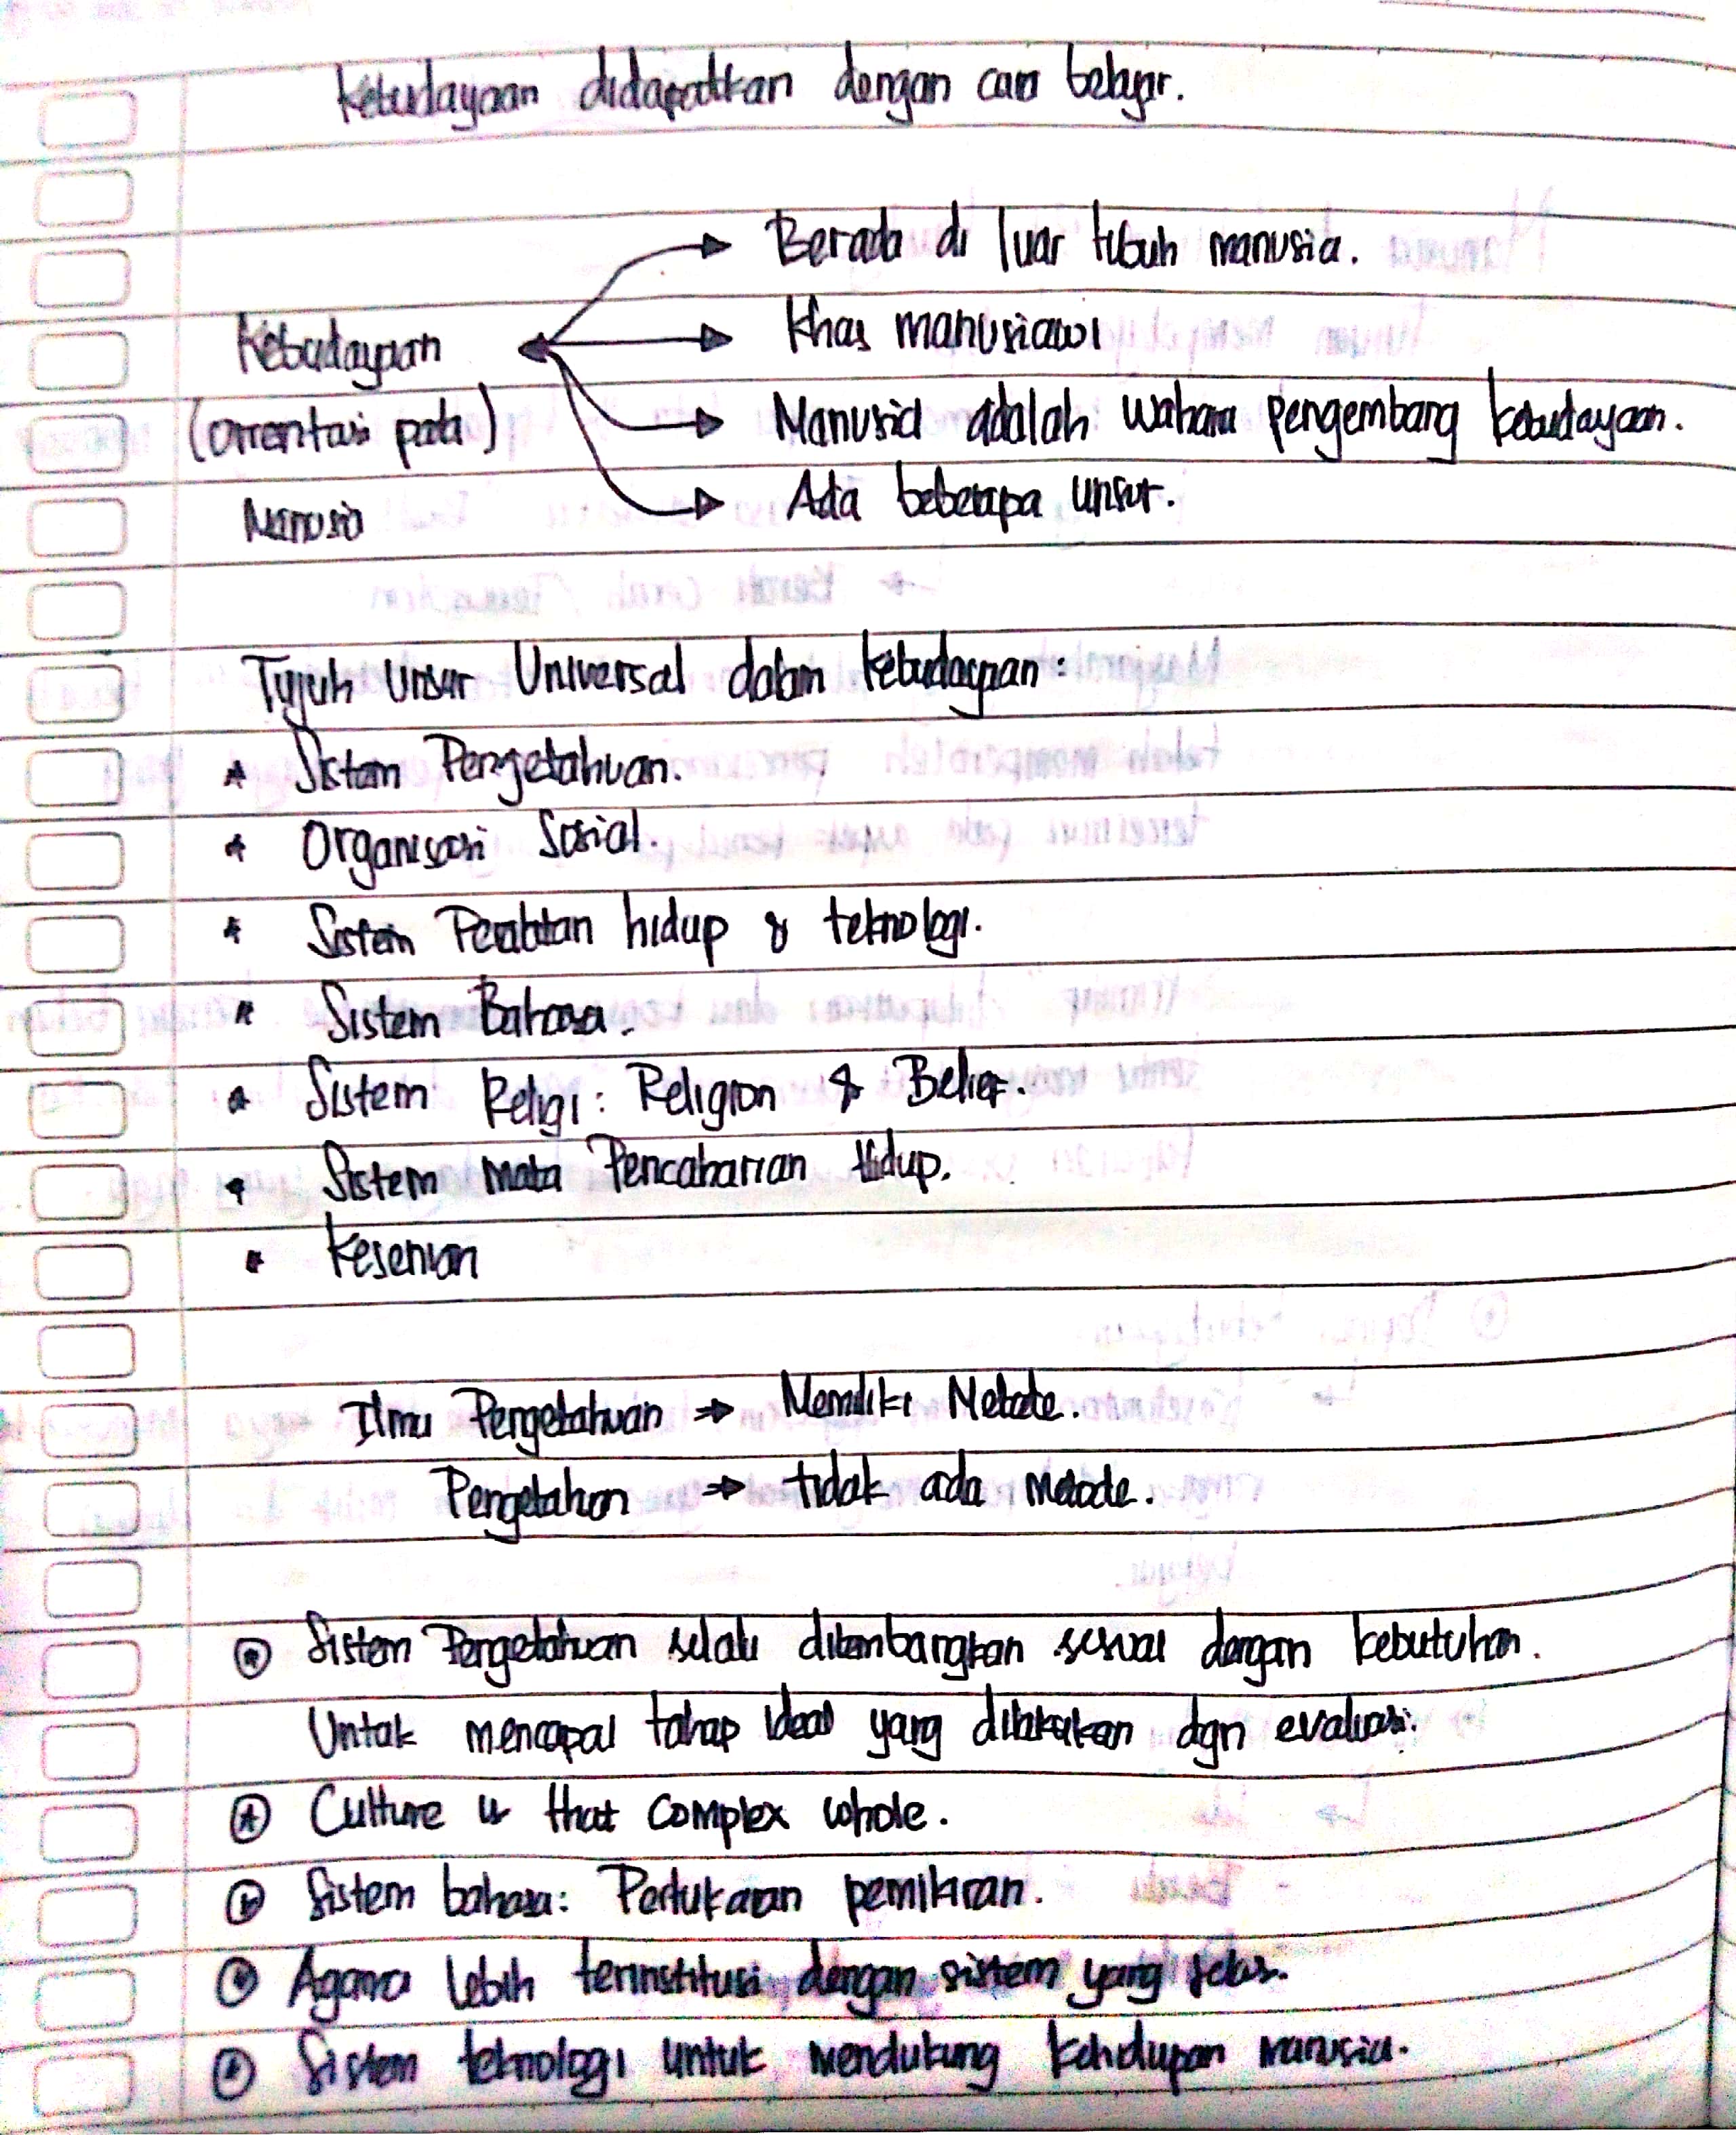 Kebudayaan didapatkan dengan cara belajar.
→ Berada di luar tubuh manusia.
Kebudayaan → Khas manusiawi
(orientasi pada) → Manusia adalah wahana pengembang kebudayaan.
Manusia → Ada beberapa unsur.
Tujuh Unsur Universal dalam kebudayaan:
* Sistem Pengetahuan.
* Organisasi Sosial.
* Sistem Peralatan hidup & teknologi.
* Sistem Bahasa.
* Sistem Religi: Religion & Belief.
* Sistem mata Pencaharian Hidup.
* Kesenian
Ilmu Pengetahuan → Memiliki Metode.
Pengetahuan → tidak ada metode.
Sistem Pengetahuan selalu dikembangkan sesuai dengan kebutuhan.
Untuk mencapai tahap ideal yang dilakukan dgn evaluasi.
Culture is that complex whole.
Sistem bahasa: Pertukaran pemikiran.
Agama lebih terinstitusi dengan sistem yang jelas.
Sistem teknologi untuk mendukung kehidupan manusia.